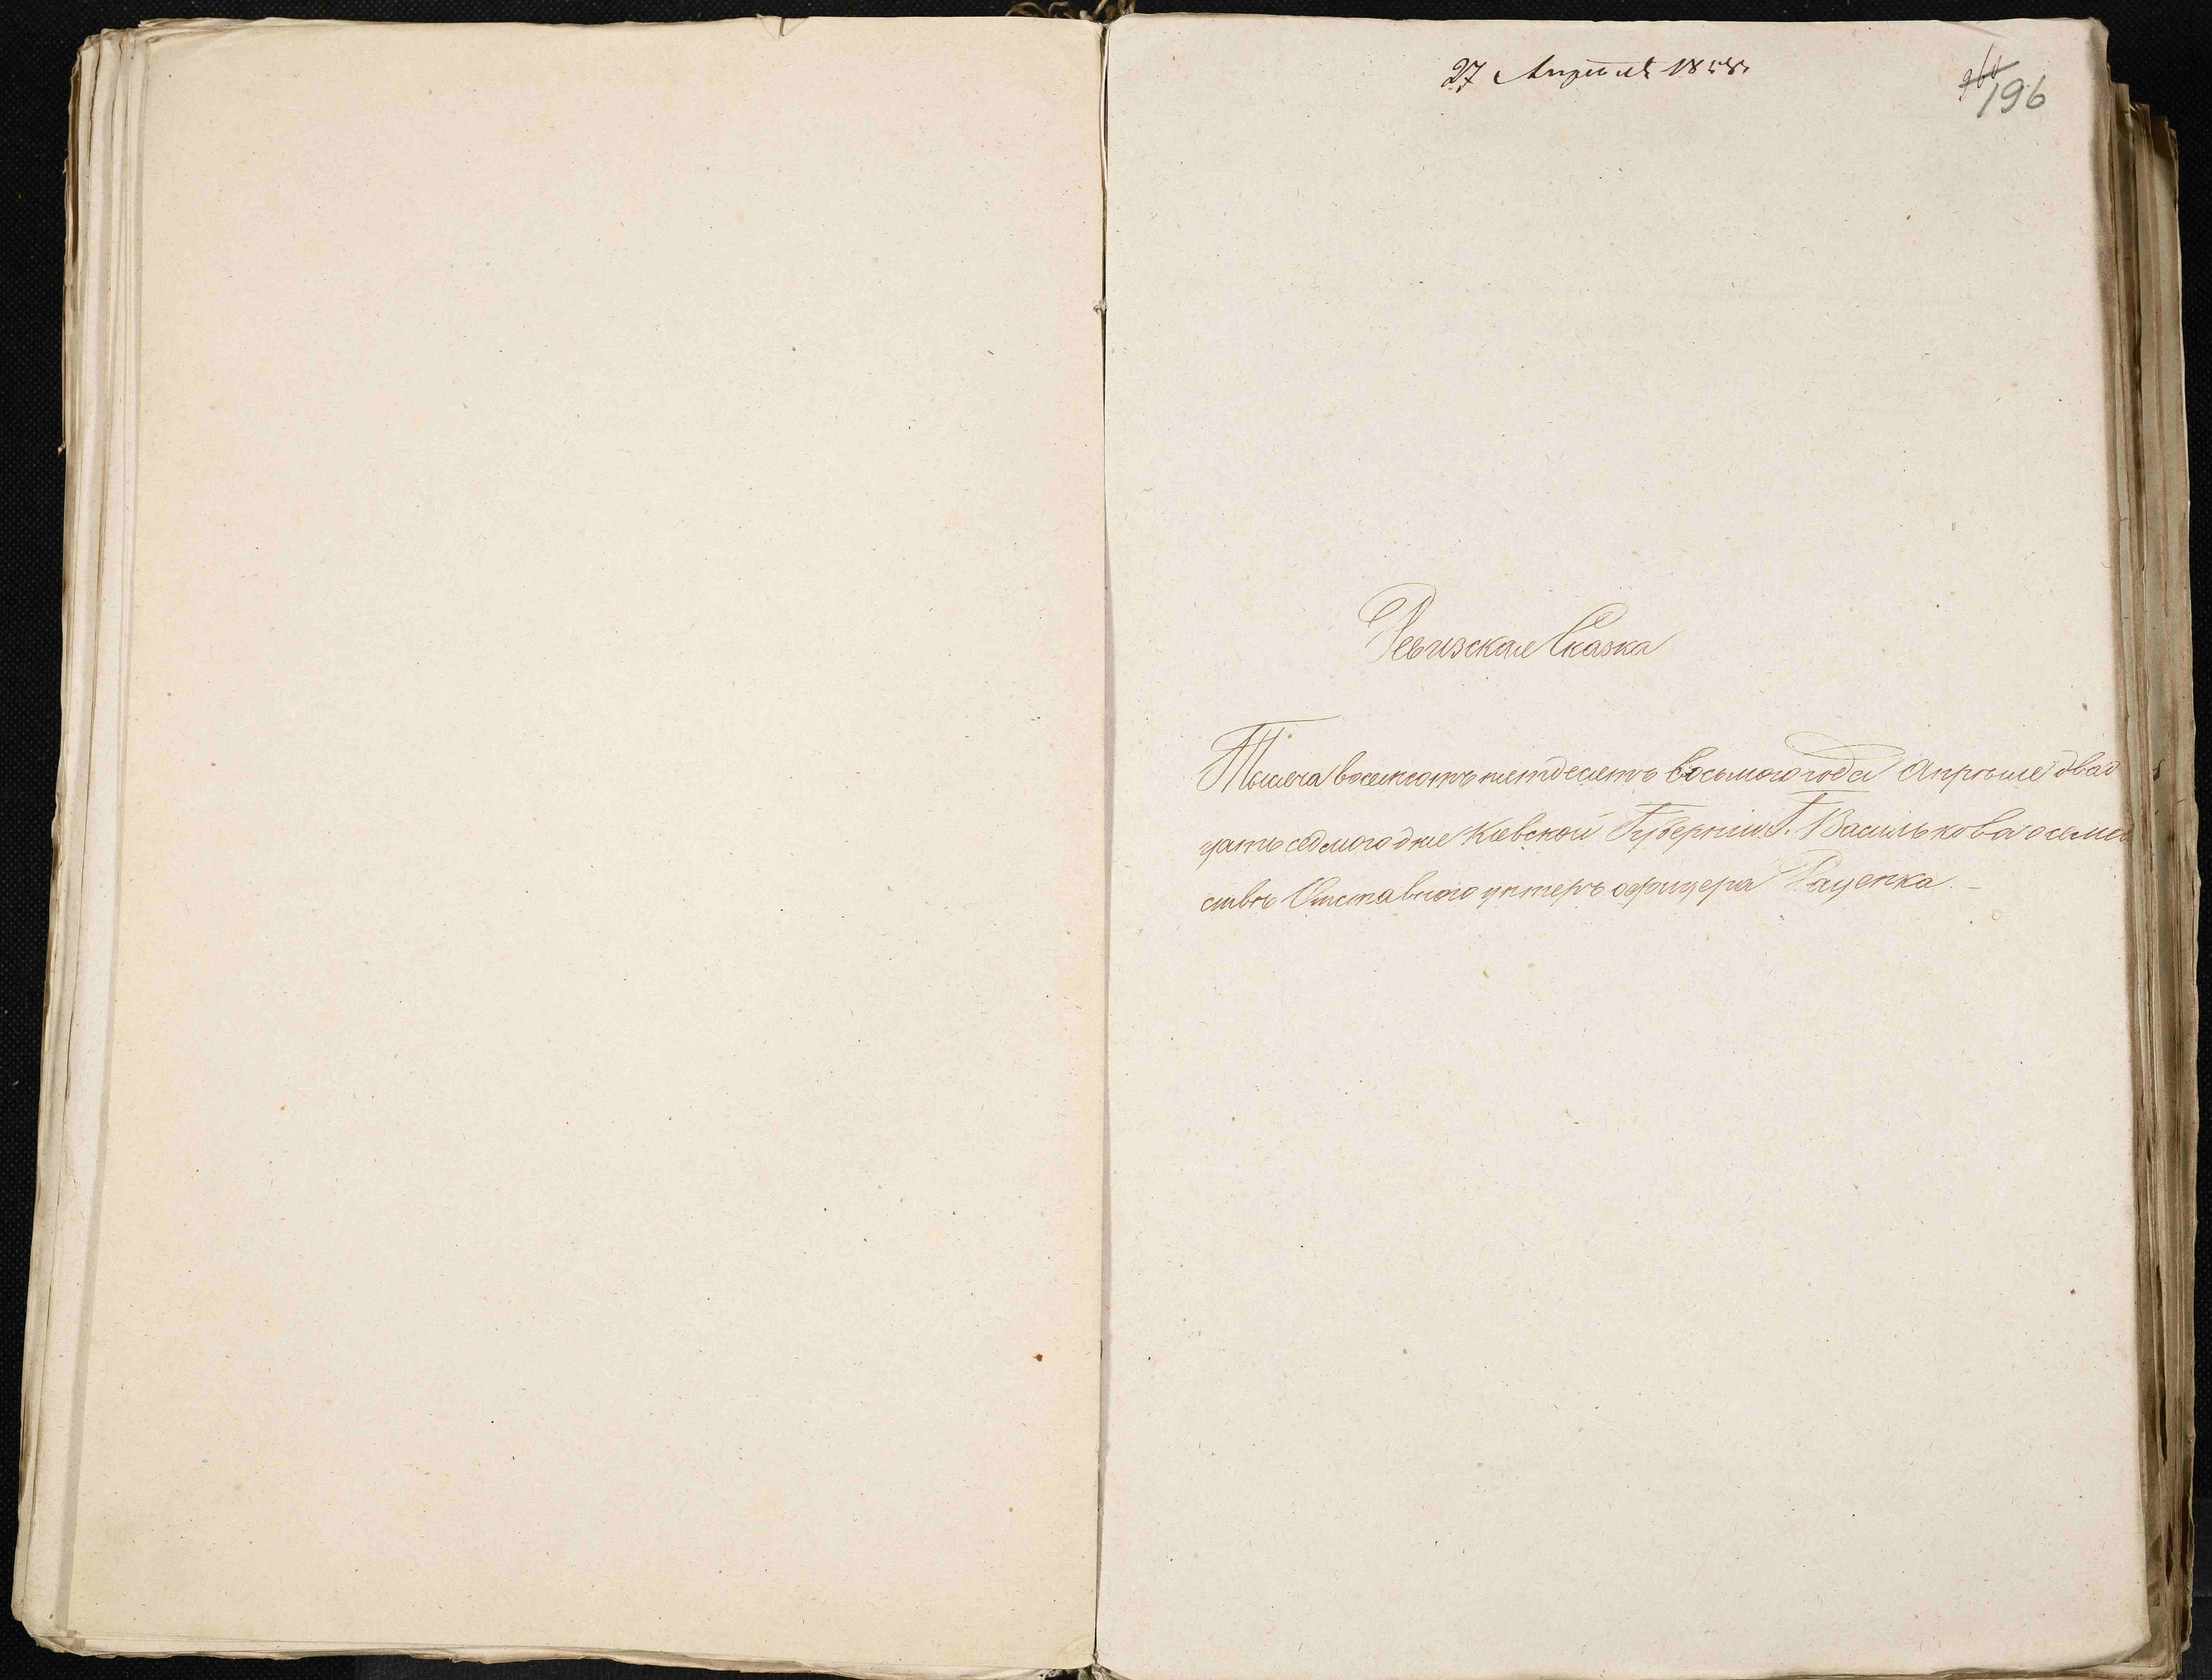 27 Апреля 1858.
196
Ревизская Сказка
Тысяча восемсотъ пятдесятъ восьмого года Апреля двад
цать седмого дня Киевской Губернии Г. Василькова о семей
ствѣ Отставного унтеръ офицера Раценка. -